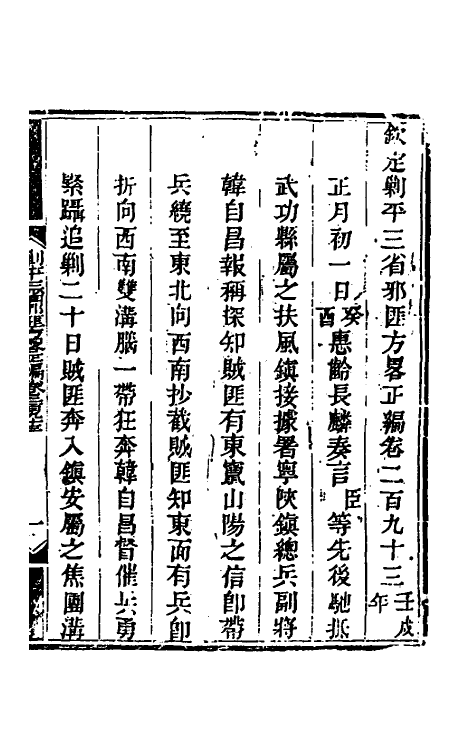 欽定剿平三省邪匪方畧正編卷二百九十三壬戌年
正月初一日癸酉惠齡長麟奏言臣等先後馳抵
武功縣屬之扶風鎮接據署寧陝鎮總兵副將
韓自昌報稱探知賊匪有東竄山陽之信卽帶
兵繞至東北向西南抄截賊匪知東面有兵卽
折向西南雙溝腦一帶狂奔韓自昌督催兵勇
緊躡追剿二十日賊匪奔入鎮安屬之焦圍溝